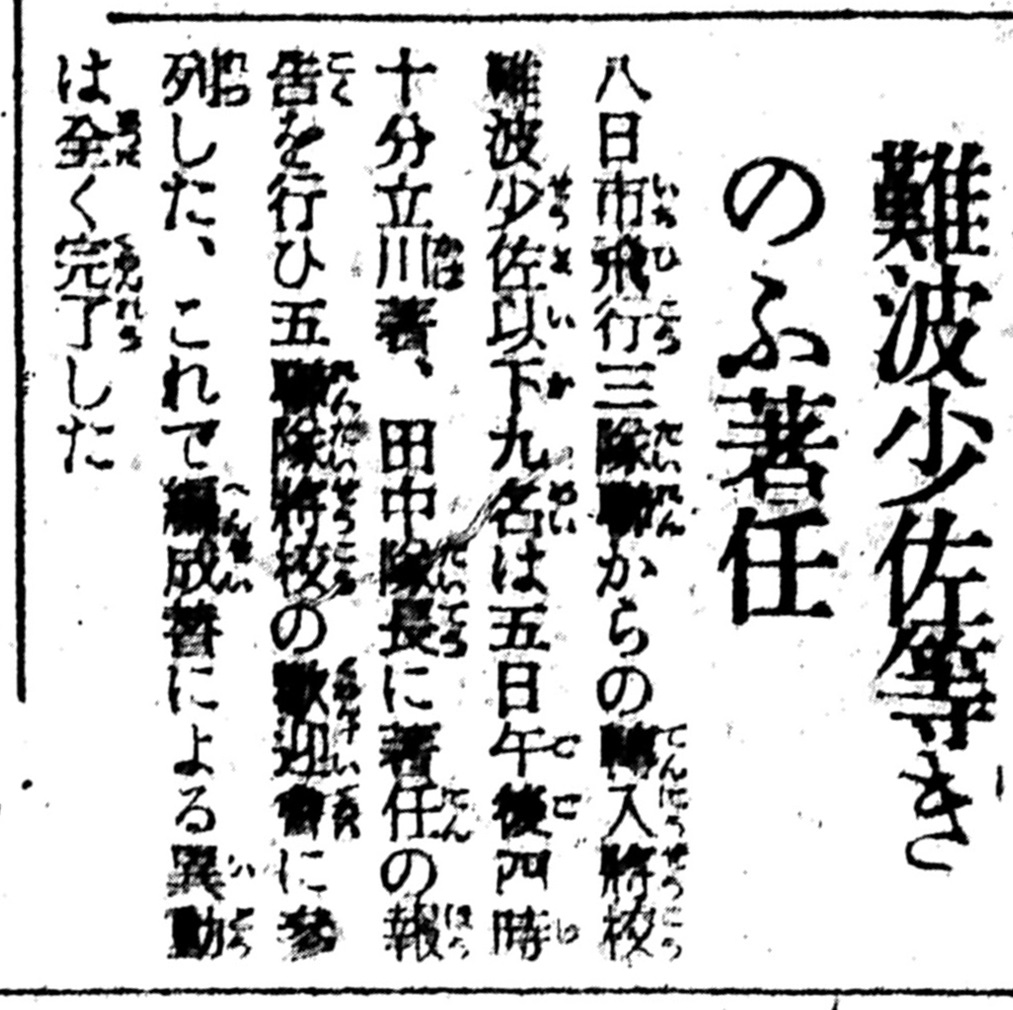 難波少佐等き
のふ著任
八日市飛行三隊聯からの轉入將校
難波少佐以下九名は五日午後四時
十分立川著、田中隊長に著任の報
告を行ひ五聯隊將校の歡迎會に參
列した、これで編成替による異動
は全く完了した